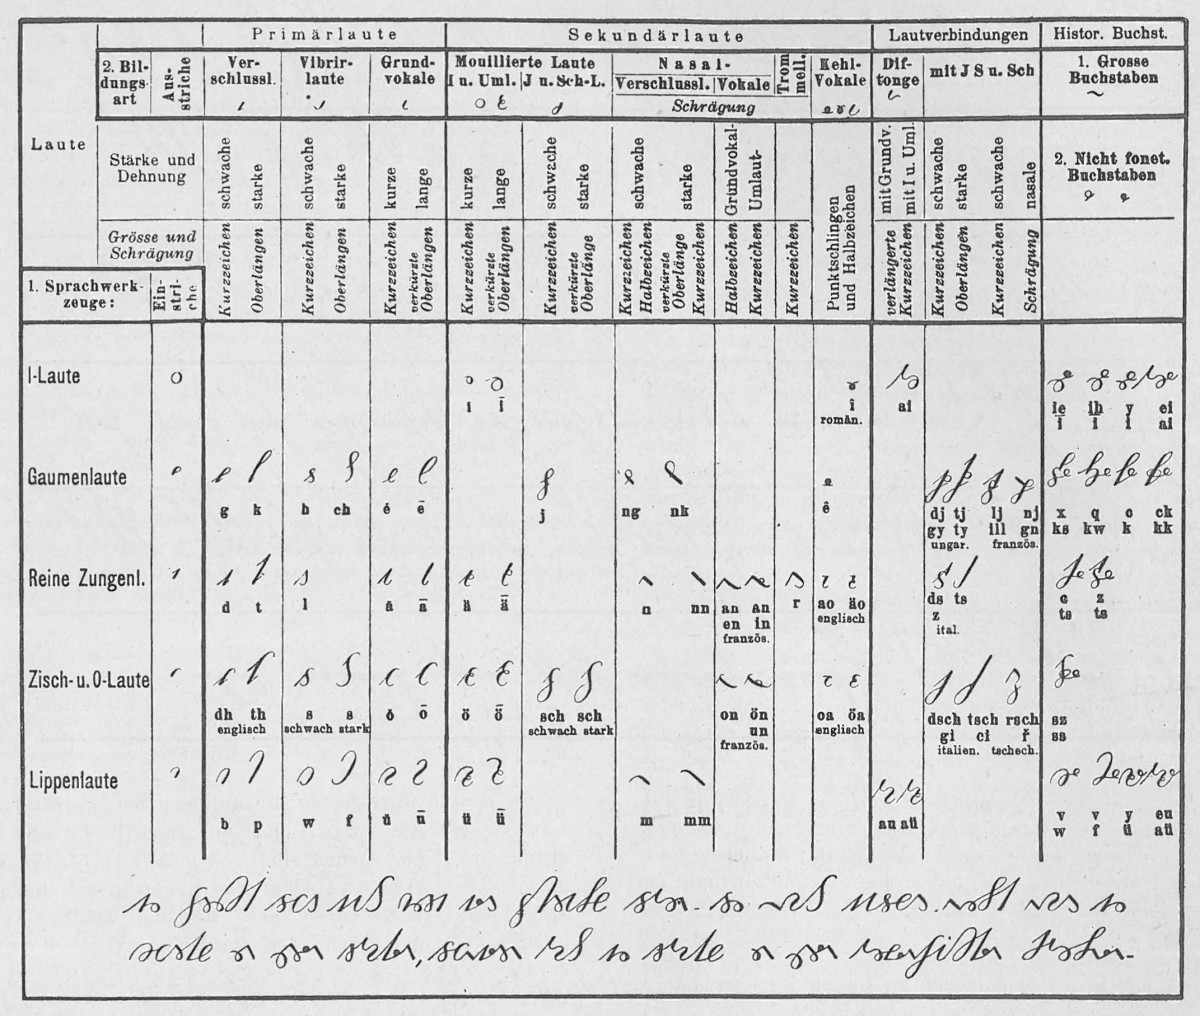 Primärlaute Sekundärlaute Lautverbindungen Histor. Buchst.
2. Bildungsart Ausstriche Verschlussl. Vibrirlaute Grundvokale Mouillierte Laute Nasal- Trommell. Kehl-Vokale Diftonge mit J S u. Sch 1. Grosse Buchstaben
I u. Uml. J u. Sch-L. Verschlussl. Vokale
Schrägung
Laute
Stärke und Dehnung schwache starke schwache starke kurze lange kurze lange schwache starke schwache starke Grundvokal- Umlaut- Punktschlingen und Halbzeichen mit Grundv. mit I u. Uml. schwache starke schwache nasale 2. Nicht fonet. Buchstaben
Grösse und Schrägung Kurzzeichen Oberlängen Kurzzeichen Oberlängen Kurzzeichen verkürzte Oberlängen Kurzzeichen verkürzte Oberlängen Kurzzeichen verkürzte Oberlänge Kurzzeichen Halbzeichen verkürzte Oberlänge Kurzzeichen Halbzeichen Kurzzeichen Kurzzeichen verlängerte Kurzzeichen Kurzzeichen Oberlängen Kurzzeichen Schrägung
1. Sprachwerkzeuge: Einstriche
I-Laute
ı ī î ai ie ih y ei
român. i i i ai
Gaumenlaute
g k h ch é ē j ng nk ê dj tj lj nj x q c ck
gy ty ill gn ks kw k kk
ungar. französ.
Reine Zungenl.
d t l a ā ä ǟ n nn an än r ao äo ds ts c z
en in englisch z ts ts
französ. ital.
Zisch- u. O-Laute
dh th s s o ō ö ȫ sch sch on ön oa öa dsch tsch rsch sz
englisch schwach stark schwach stark un englisch gi ci ř ss
französ. italien. tschech.
Lippenlaute
b p w f u ū ü ǖ m mm au aü v v y eu
w f ü aü